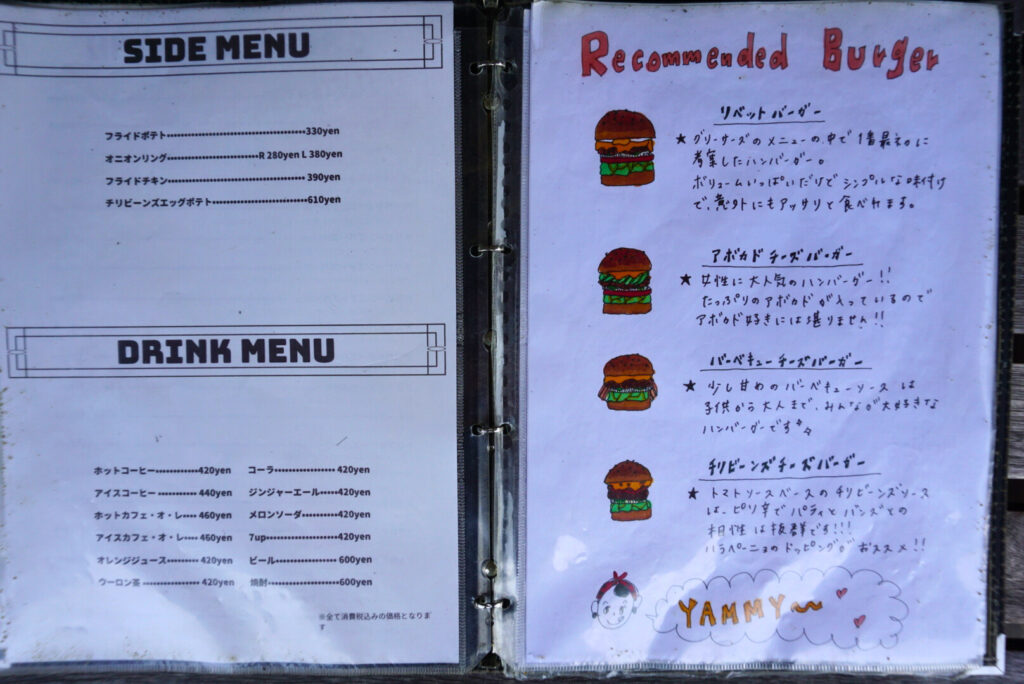 SIDE MENU
フライドポテト 330yen
オニオンリング R 280yen L 380yen
フライドチキン 390yen
チリビーンズエッグポテト 610yen
DRINK MENU
ホットコーヒー 420yen
アイスコーヒー 440yen
ホットカフェ・オ・レ 460yen
アイスカフェ・オ・レ 460yen
オレンジジュース 420yen
ウーロン茶 420yen
コーラ 420yen
ジンジャーエール 420yen
メロンソーダ 420yen
7up 420yen
ビール 600yen
焼酎 600yen
※全て消費税込みの価格となりま
す
Recommended Burger
リベットバーガー
★ グリーサーズのメニューの中で1番最初に
考案したハンバーガー。
ボリュームいっぱいだけどシンプルな味付け
で、意外にもアッサリと食べれます。
アボカドチーズバーガー
★ 女性に大人気のハンバーガー!!
たっぷりのアボカドが入っているので
アボカド好きには堪りません!!
バーベキューチーズバーガー
★ 少し甘めのバーベキューソースは
子供から大人まで、みんなが大好きな
ハンバーグーです
チリビーンズチーズバーガー
★ トマトソースベースのチリビーンズソース
は、ピリ辛でパティとバンズとの
相性は抜群です!!!
ハラペーニョのトッピングがおススメ!!
YAMMY〜